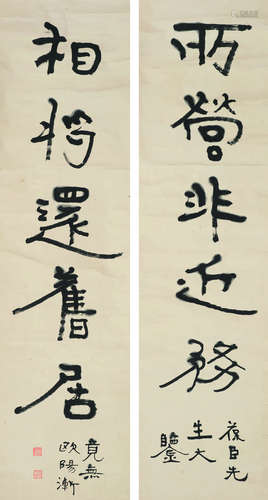 所營非近務
葆臣先
生大
鑒
相將還舊居
竟無
歐陽漸